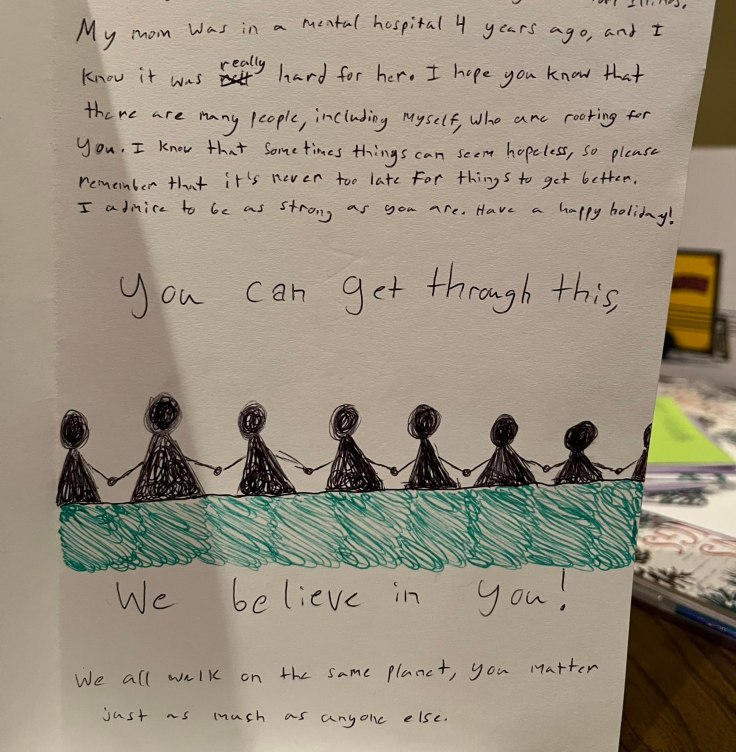 My mom was in a mental hospital 4 years ago, and I
know it was really hard for her. I hope you know that
there are many people, including myself, who are rooting for
you. I know that sometimes things can seem hopeless, so please
remember that it's never too late for things to get better.
I admire to be as strong as you are. Have a happy holiday!
You can get through this,
We believe in you!
We all walk on the same planet, you matter
just as much as anyone else.